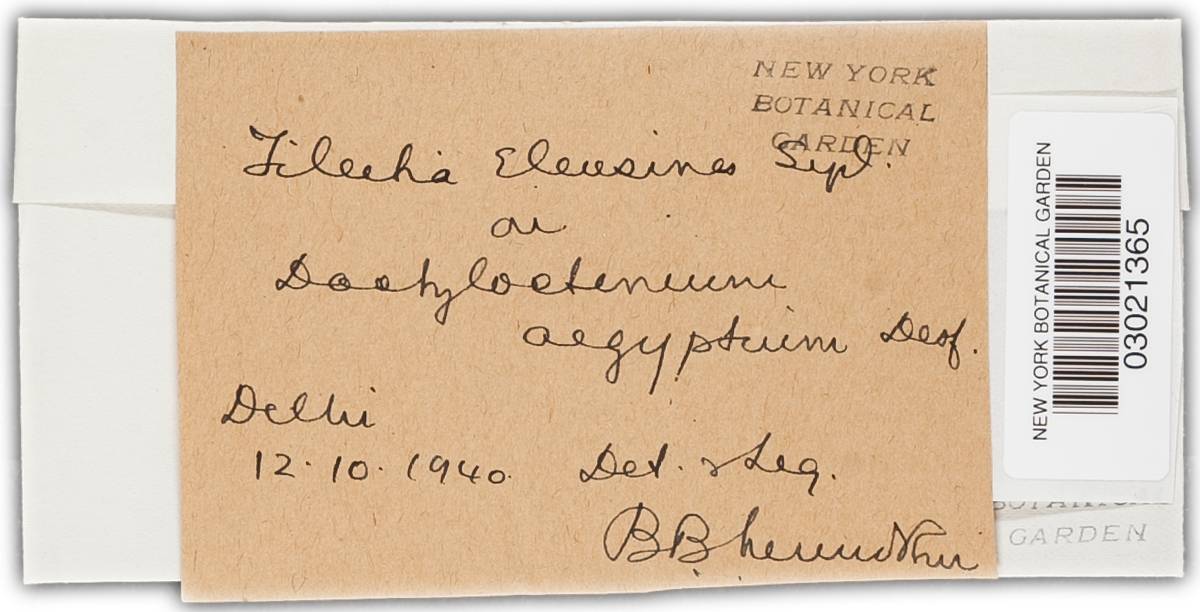 NEW YORK
BOTANICAL
GARDEN
Tilletia Eleusines Syd.
on
Dactyloctenium
aegyptium Desf.
Delhi
12.10.1940. Det. & Leg.
NEW YORK BOTANICAL GARDEN
03021365
BOTANICAL
GARDEN